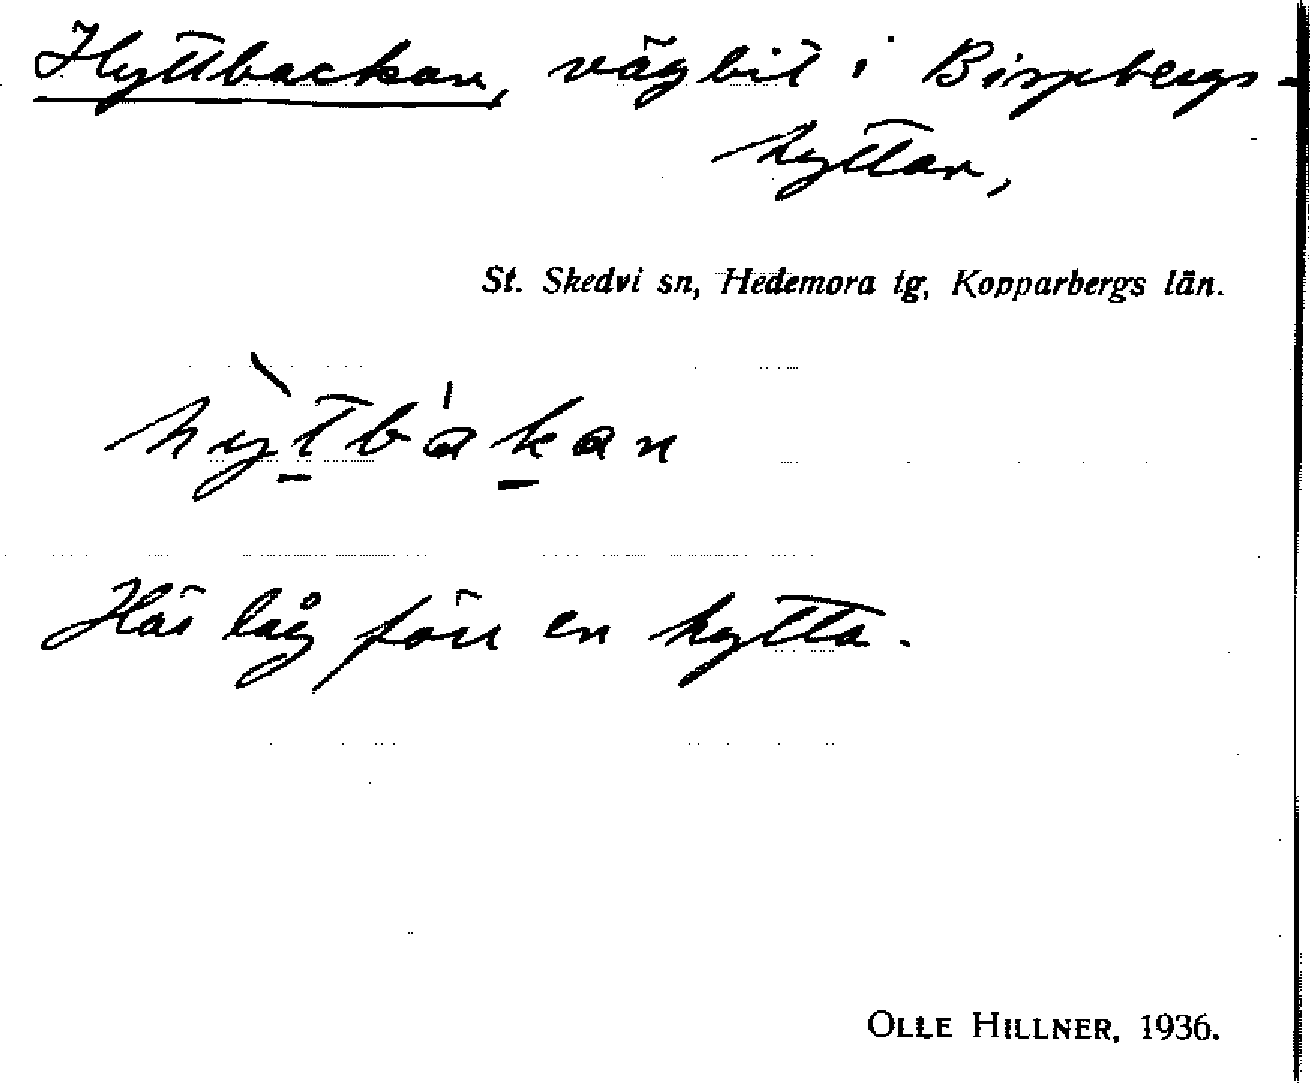 Hyttbackan, vägbit i Bispbergs-
hyttan,
St. Skedvi sn, Hedemora tg, Kopparbergs län.
hỳt̲bák̲an
Här låg förr en hytta.
OLLE HILLNER, 1936.